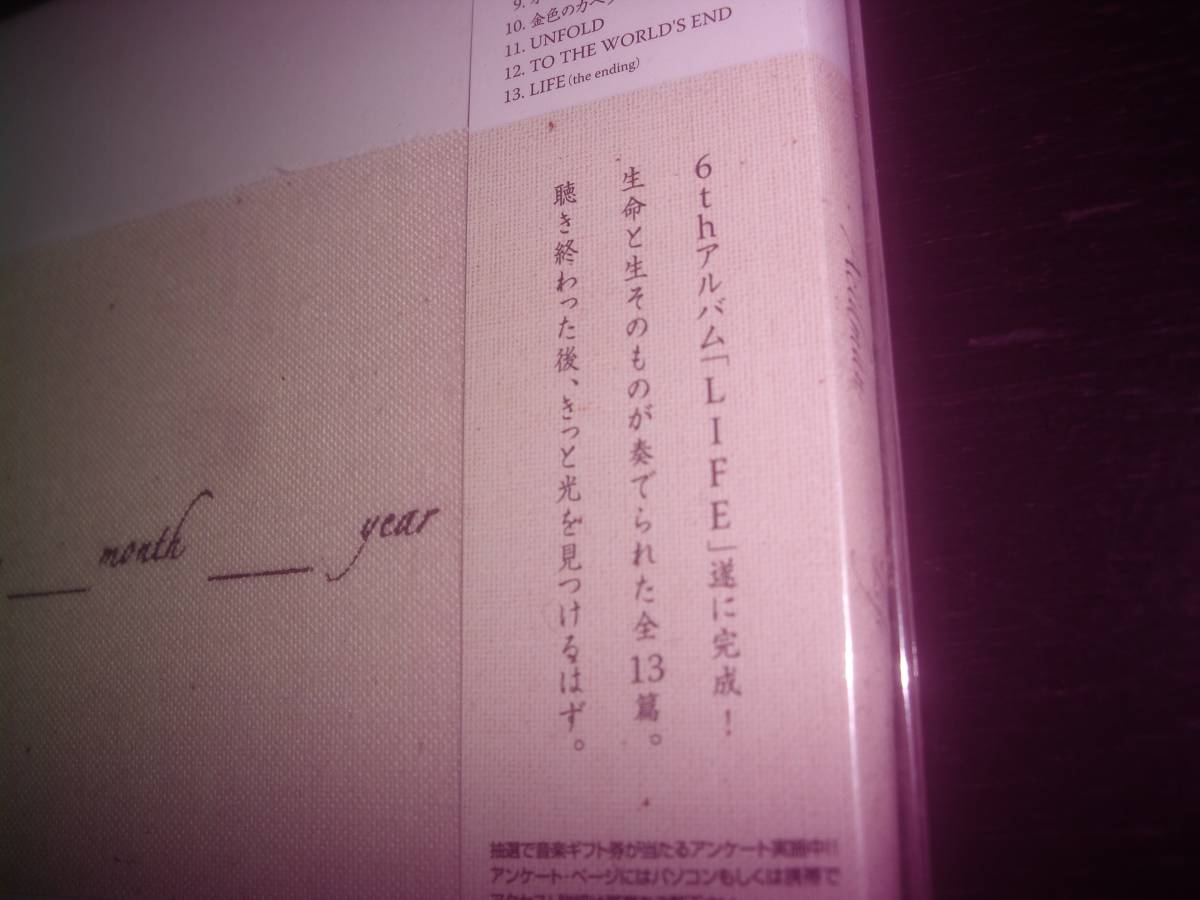 10. 金色のカベ
11. UNFOLD
12. TO THE WORLD'S END
13. LIFE (the ending)
6thアルバム「LIFE」遂に完成!
生命と生そのものが奏でられた全13篇。
聴き終わった後、きっと光を見つけるはず。
month year
抽選で音楽ギフト券が当たるアンケート実施中!!
アンケート・ページにはパソコンもしくは携帯で